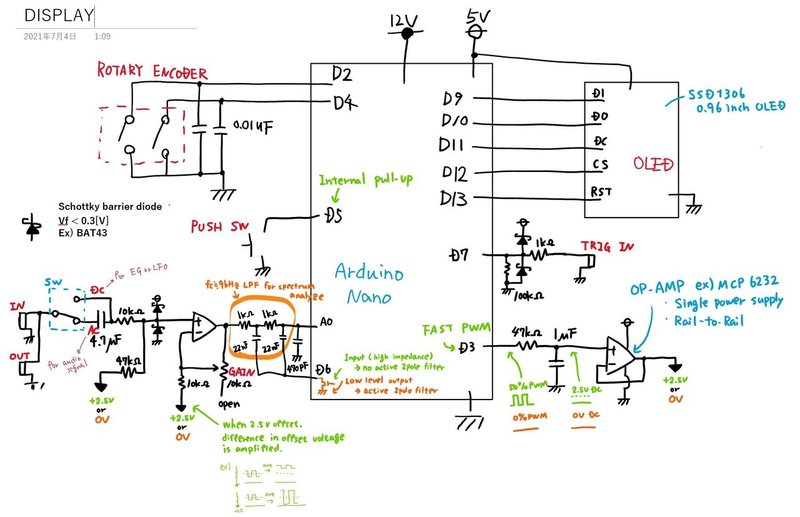 DISPLAY
2021年7月4日 1:09
12V
5V
ROTARY ENCODER
0.01uF
D2
D4
D9
D10
D11
D12
D13
D1
D0
DC
CS
RST
OLED
SSD1306
0.96 inch OLED
Internal pull-up
D5
PUSH SW
Schottky barrier diode
Vf < 0.3[V]
Ex) BAT43
Arduino
Nano
D7
1kΩ
TRIG IN
100kΩ
OP-AMP ex) MCP 6232
・Single power supply
・Rail-to-Rail
FAST PWM
D3
47kΩ
1μF
50%PWM
0%PWM
2.5V DC
0V DC
+2.5V
or
0V
SW
DC
For EQ or LFO
IN
OUT
AC
4.7μF
For audio
signal
10kΩ
47kΩ
+2.5V
or
0V
fc≒9kHz LPF for spectrum
analyze
1kΩ
1kΩ
22nF
22nF
470pF
A0
D6
Input (high impedance)
→ no active 2pole filter
Low level output
→ active 2pole filter
GAIN
10kΩ
10kΩ
open
+2.5V
or
0V
When 2.5V offset.
difference in offset voltage
is amplified.
ex)
amp
amp